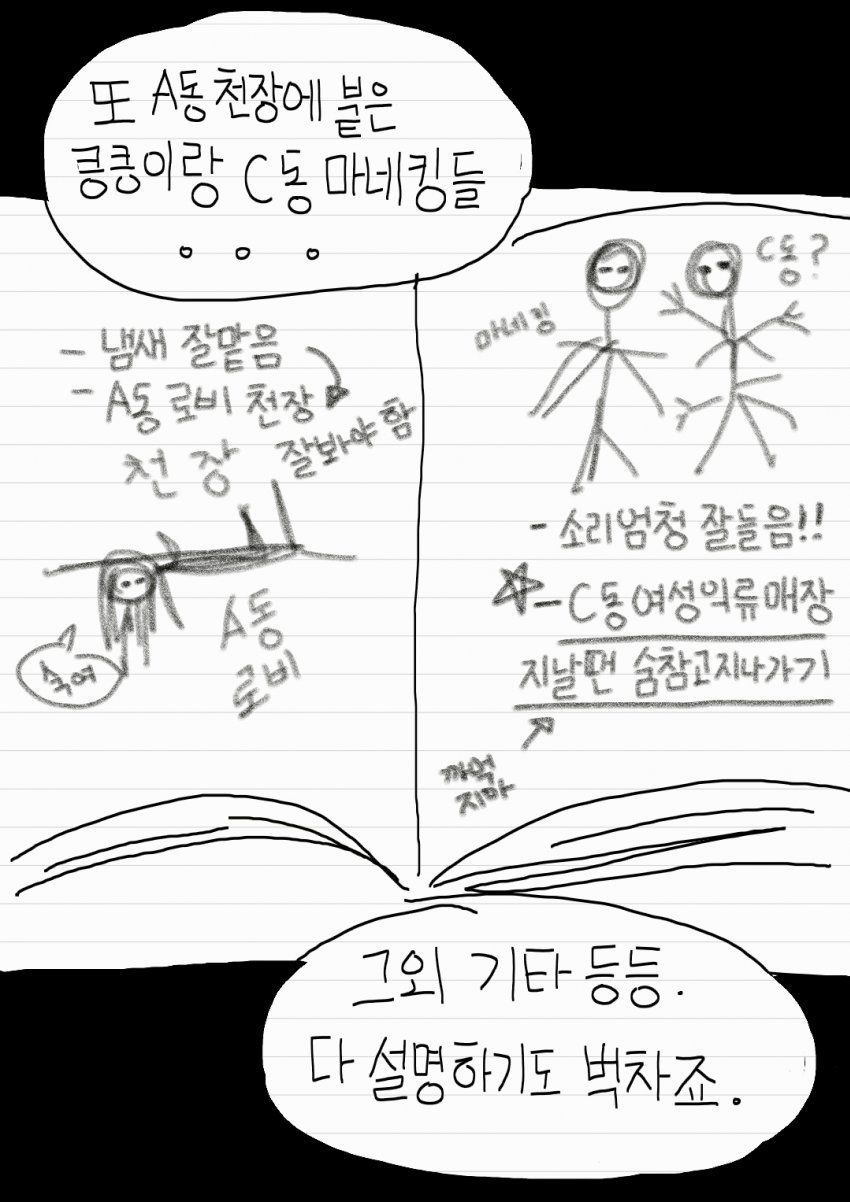 또 A동 천장에 붙은
킁킁이랑 C동 마네킹들
...
- 냄새 잘맡음
- A동 로비 천장
잘봐야 함
천장
숙여
A동
로비
C동?
마네킹
- 소리엄청 잘들음!!
☆- C동 여성의류매장
지날땐 숨참고지나가기
까먹
지마
그외 기타 등등.
다 설명하기도 벅차죠.